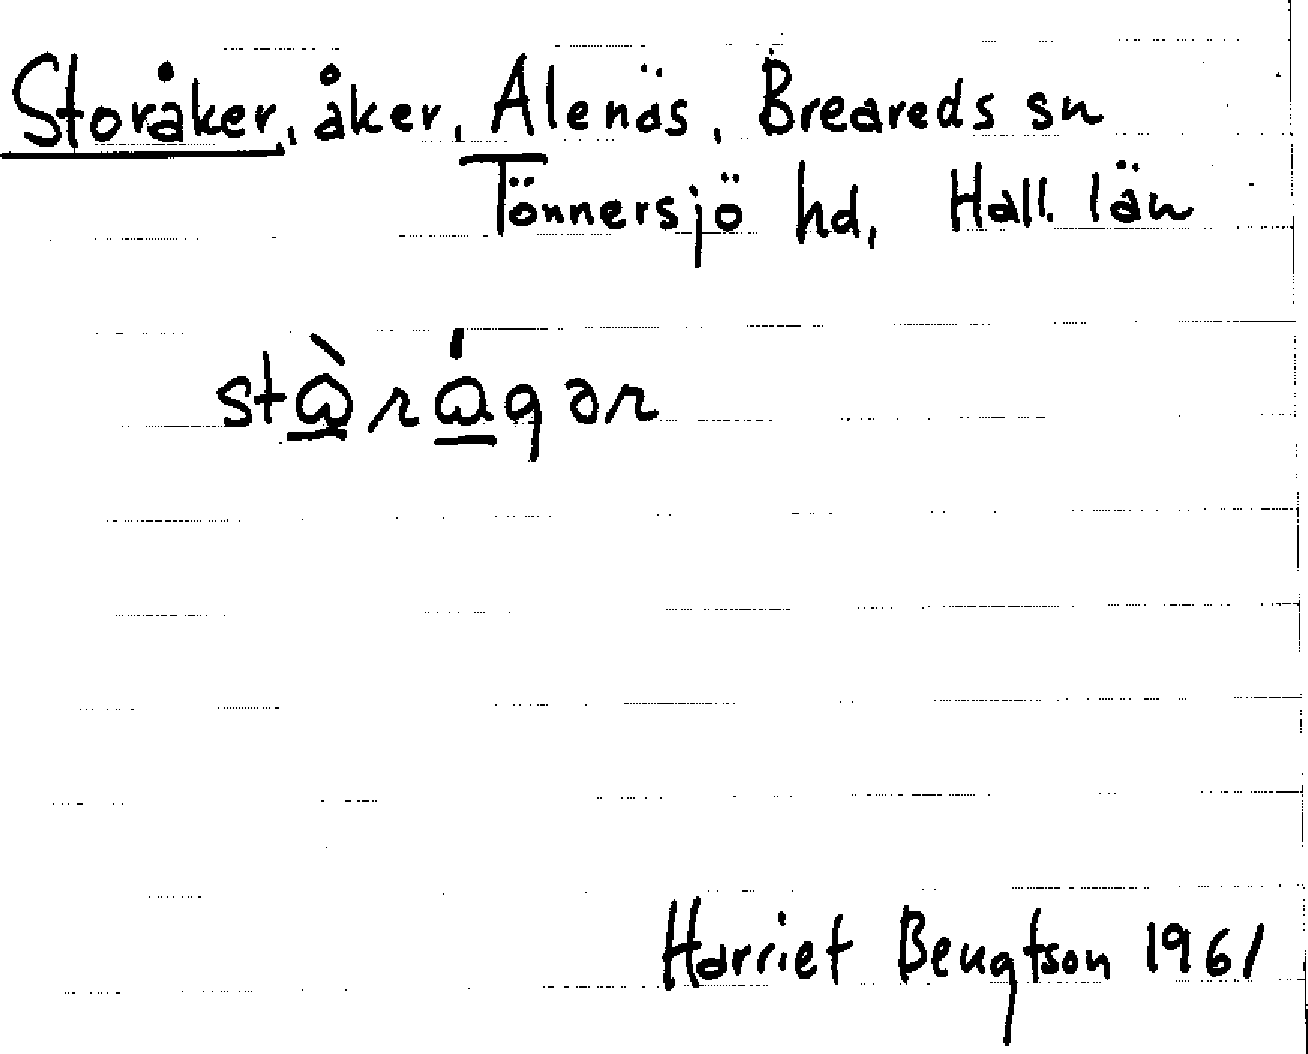 Storåker, åker, Alenäs, Breareds sn
Tönnersjö hd, Hall. län
Harriet Bengtson 1961